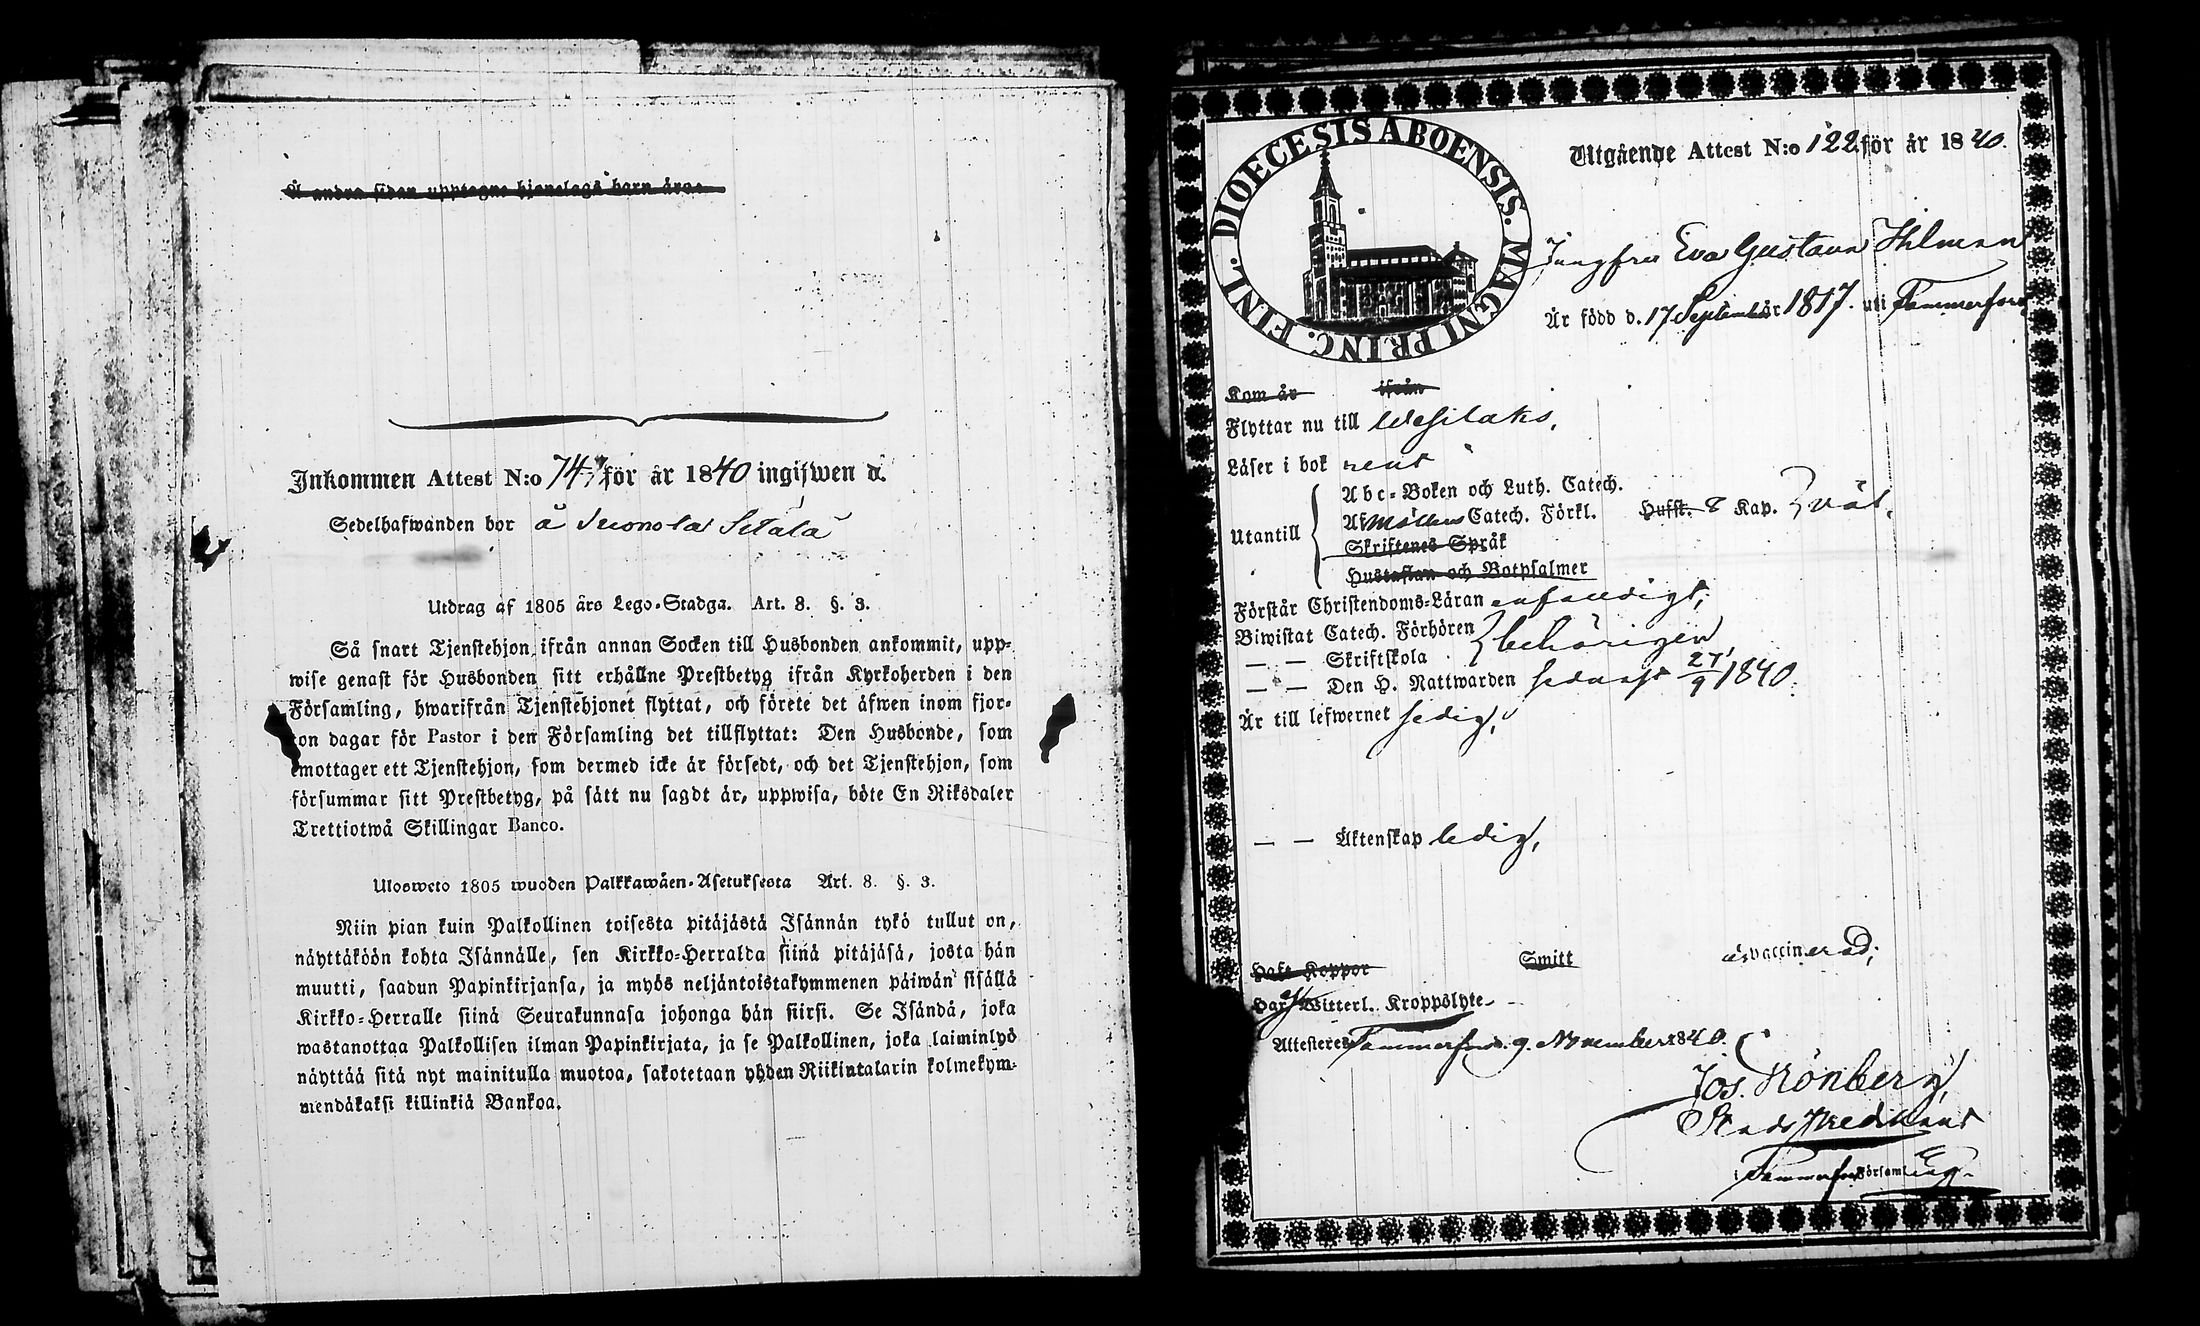 Å andra sidan upptagne hjonelags barn äro:
Inkommen Attest N:o 74 för år 1840 ingifwen d.
Sedelhafwanden bor å Suonola Sitälä
Utdrag af 1805 års Lego-Stadga. Art. 8. §. 3.
Så snart Tjenstehjon ifrån annan Socken till Husbonden ankommit, upp-
wise genast för Husbonden sitt erhållne Prestbetyg ifrån Kyrkoherden i den
Församling, hwarifrån Tjenstehjonet flyttat, och förete det äfwen inom fjor-
ton dagar för Pastor i den Församling det tillflyttat: Den Husbonde, som
emottager ett Tjenstehjon, som dermed icke är försedt, och det Tjenstehjon, som
försummar sitt Prestbetyg, på sätt nu sagdt är, uppwisa, böte En Riksdaler
Trettiotwå Skillingar Banco.
Ulosweto 1805 wuoden Palkkawäen-Asetuksesta Art. 8. §. 3.
Niin pian kuin Palkollinen toisesta pitäjästä Isännän tykö tullut on,
näyttäköön kohta Isännälle, sen Kirkko-Herralda siinä pitäjäsä, josta hän
muutti, saadun Papinkirjansa, ja myös neljäntoistakymmenen päiwän sisällä
Kirkko-Herralle siinä Seurakunnasa johonga hän siirsi. Se Isändä, joka
wastanottaa Palkollisen ilman Papinkirjata, ja se Palkollinen, joka laiminlyö
näyttää sitä nyt mainitulla muotoa, sakotetaan yhden Riikintalarin kolmekym-
mendäkaksi killinkiä Bankoa.
DIOECESIS ABOENSIS. MAGNI PRINC. FINL.
Utgående Attest N:o 122 för år 1840.
Jungfru Eva Gustava Hilman
Är född d. 17 September 1817. uti Tammerfors
Kom år ifrån
Flyttar nu till Wesilaks.
Läser i bok rent
Utantill
Abc-Boken och Luth. Catech.
Af Möllers Catech. Förkl. Hufst. 8 Kap. väl.
Skriftenes Språk
Hustaflan och Botpsalmer
Förstår Christendoms-Läran enfaldigt,
Biwistat Catech. Förhören behörigen
— — Skriftskola
— — Den H. Nattwarden sednast 27/9 1840.
Är till lefwernet sedig,
— — Äktenskap ledig,
Haft Koppor Smitt är vaccinerad;
Har ej Witterl. Kroppslyte
Attesteras Tammerfors d. 9. November 1840.
Jos. Grönberg
Stads Predikant
i Tammerfors Församling.